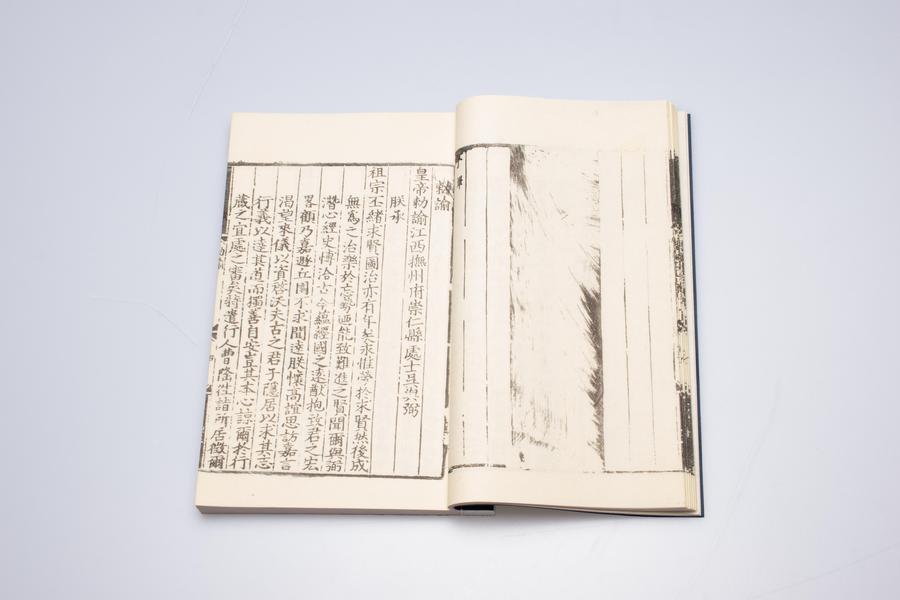 勑諭
皇帝勑諭江西撫州府崇仁縣處士吳與弼
朕承
祖宗丕緒求賢圖治亦有年矣永惟勞於求賢然後成
無爲之治樂於忘勢迺能致難進之賢聞爾與弼
潛心經史博洽古今蘊經國之遠猷抱致君之宏
畧顧乃嘉遯丘園不求聞達朕懷高誼思訪嘉言
渴望來儀以資啓沃夫古之君子隱居以求其志
行義以達其道而獨善自安豈其本心諒爾於行
藏之宜處之審矣特遣行人曹隆徃詣所居徵爾